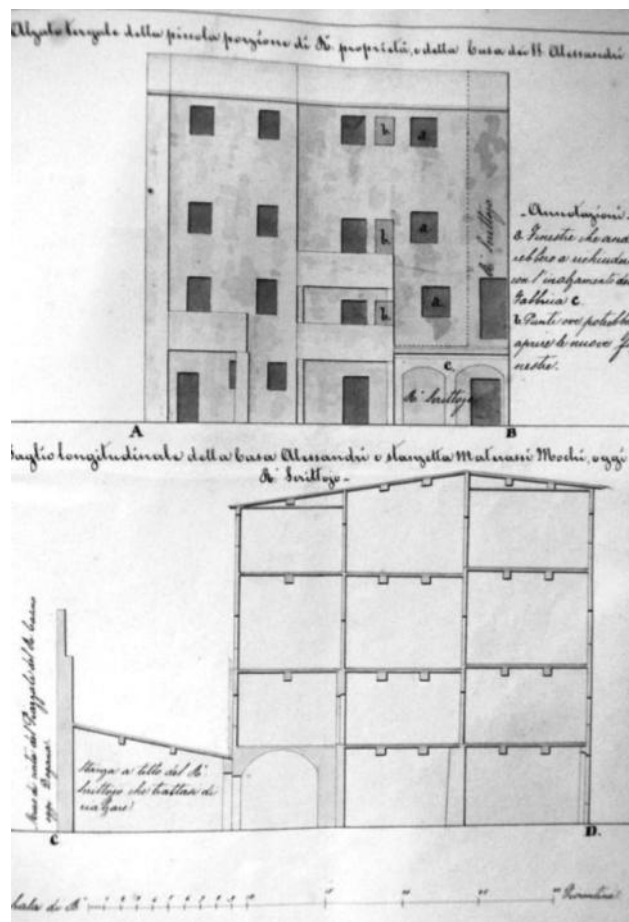 Alzato tergale della piccola porzione di R. proprietà, e della Casa dei SS. Alessandri
b. a.
b. a.
b. a.
R. Scrittojo
c.
R. Scrittojo
A B
Annotazioni
a. Finestre che and
rebbero a richiuder
con l'inalzamento de
Fabbrica C.
b. Punti ove potrebb
aprire le nuove Fi
nestre.
Taglio longitudinale della Casa Alessandri e stanzetta Materassi Mochi, oggi
R. Scrittojo
Muro di cinta del Piazzale del R. Casino
oggi Dogana
Stanza a tetto del R.
Scrittojo che trattasi di
rialzare
C. D.
Scala di B. Fiorentine